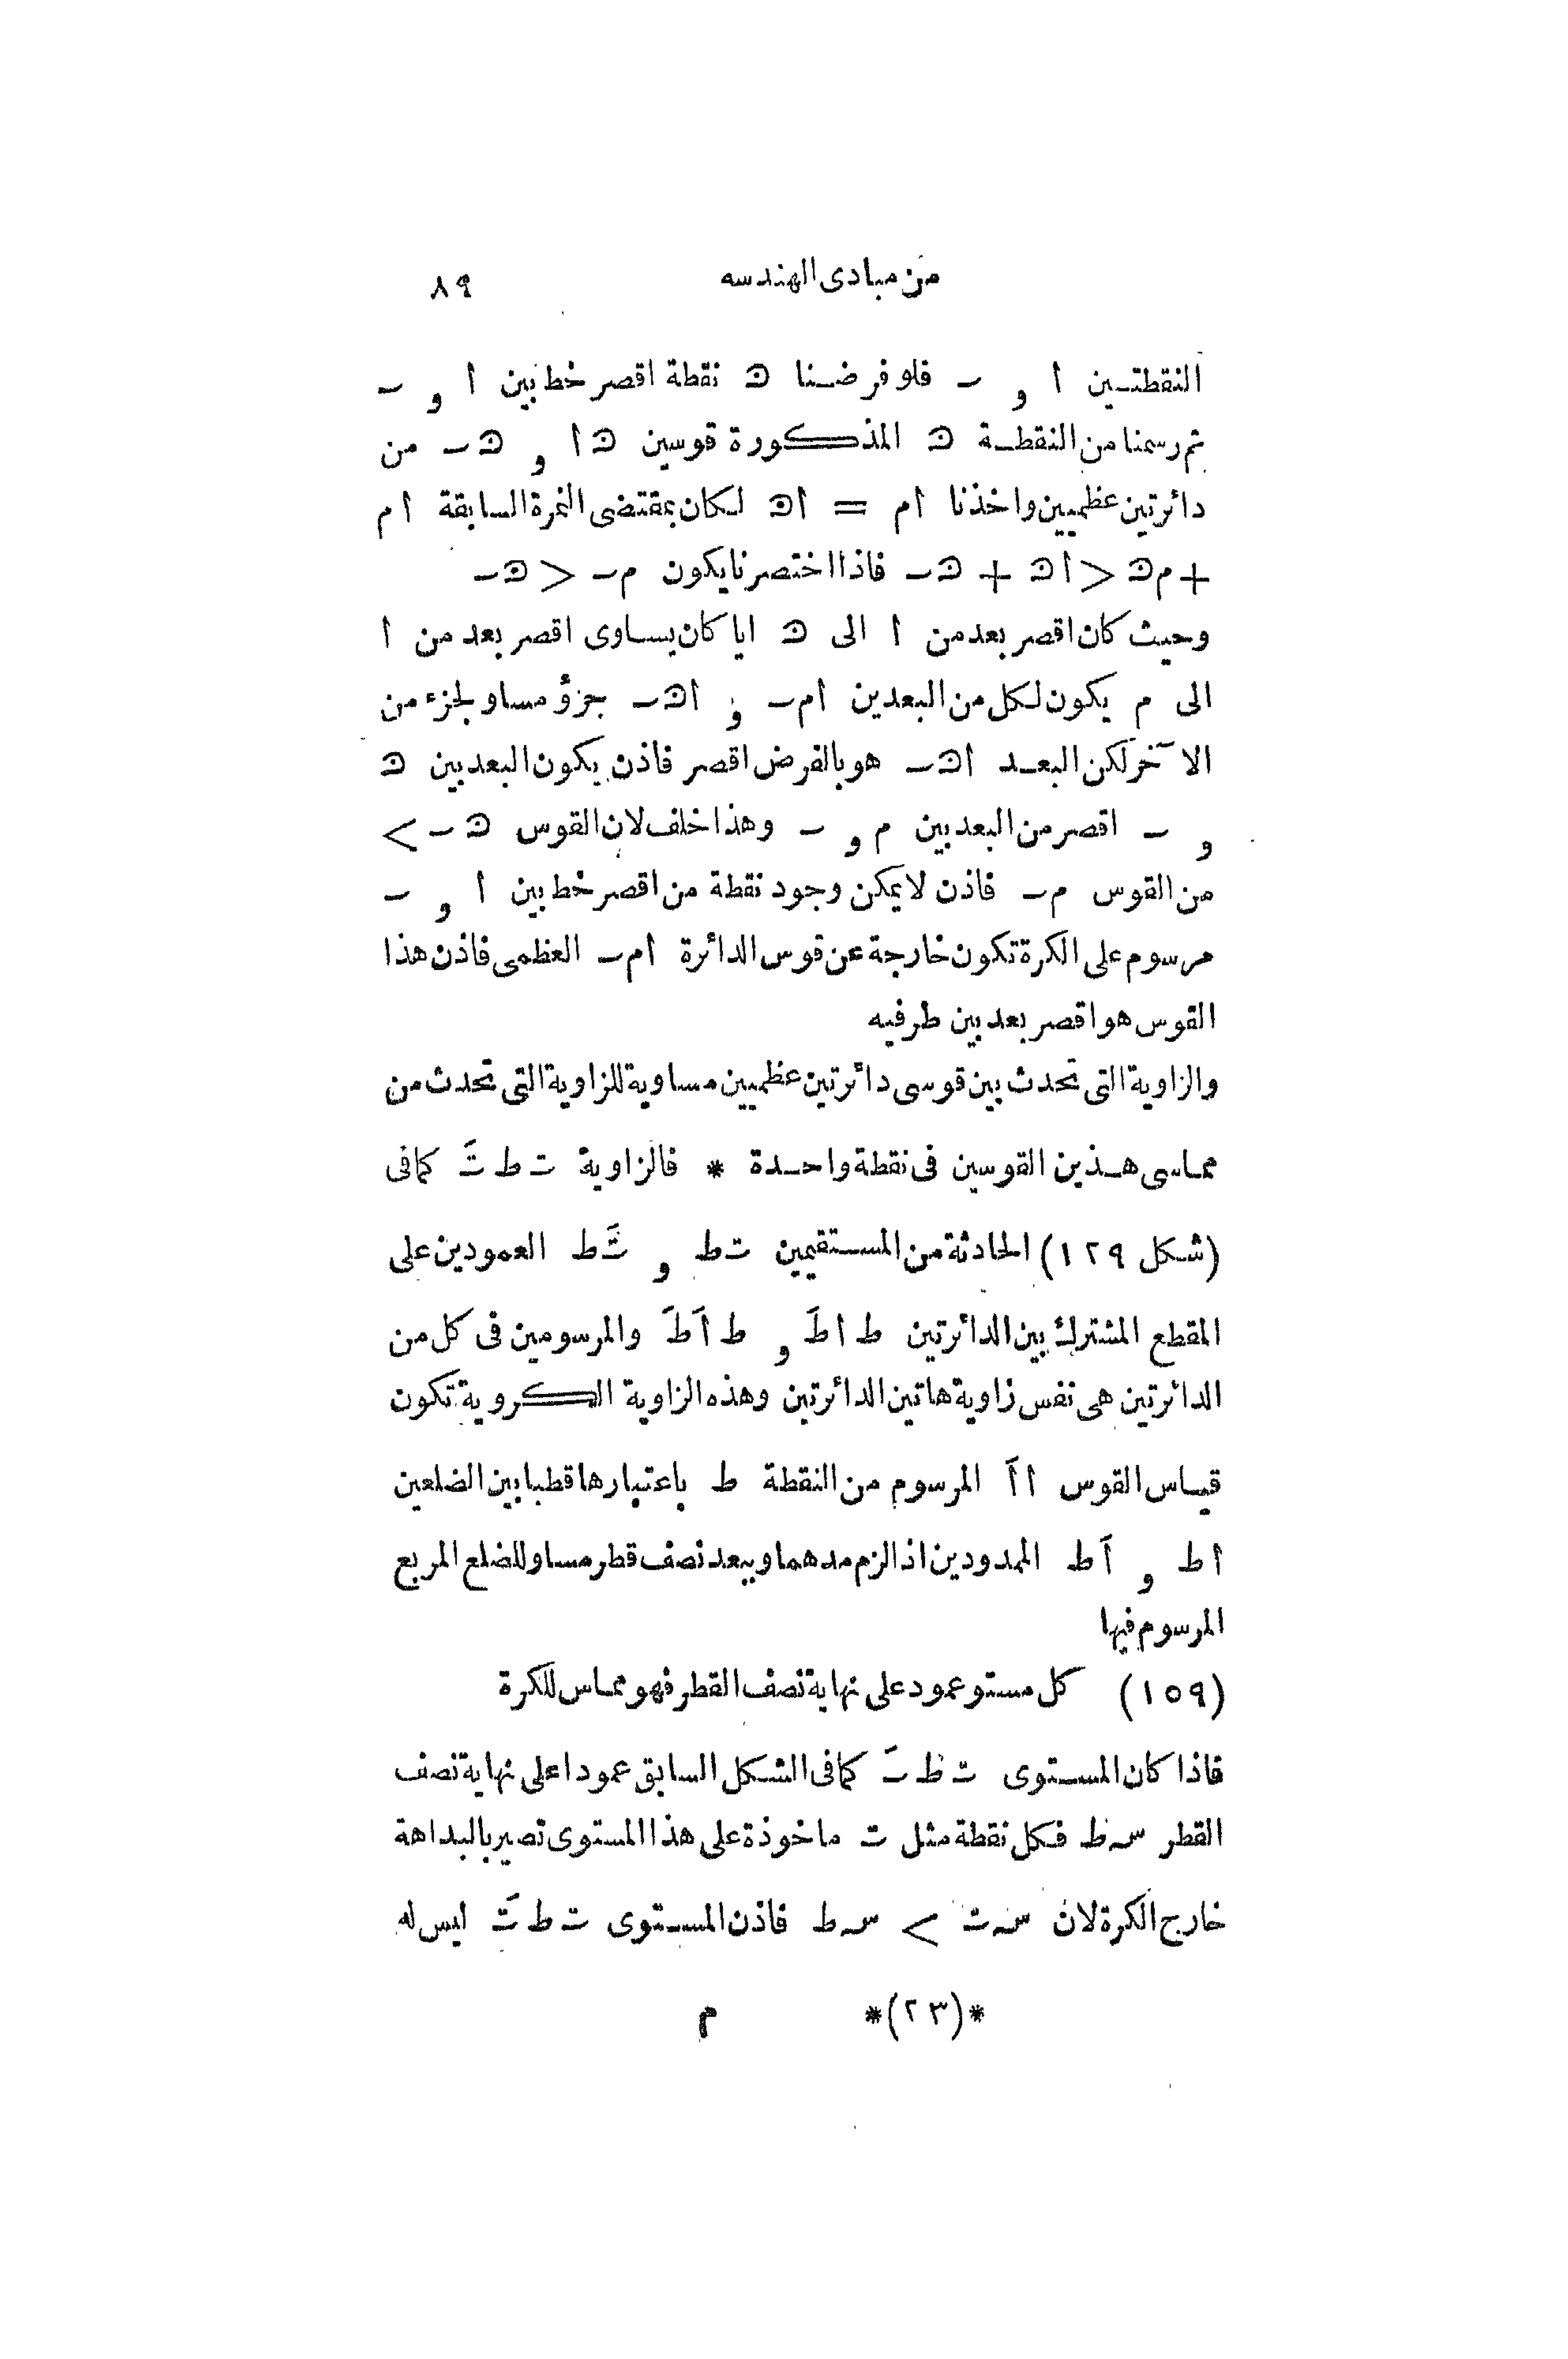 من مبادى الهندسه ٨٩
النقطتين ا و ٮ فلو فرضنا ට نقطة اقصر خط بين ا و ٮ
ثم رسمنا من النقطة ට المذكورة قوسين ටا و ටٮ من
دائرتين عظميين واخذنا ام = اට لكان بمقتضى النمرة السابقة ام
+ مට > اට + ටٮ فاذا اختصرنا يكون مٮ > ටٮ
وحيث كان اقصر بعد من ا الى ට ايا كان يساوى اقصر بعد من ا
الى م يكون لكل من البعدين امٮ و اටٮ جزؤ مساو لجزء من
الآخر لكن البعد اටٮ هو بالفرض اقصر فاذن يكون البعد بين ට
و ٮ اقصر من البعد بين م و ٮ وهذا خلف لان القوس ටٮ <
من القوس مٮ فاذن لا يمكن وجود نقطة من اقصر خط بين ا و ٮ
مرسوم على الكرة تكون خارجة عن قوس الدائرة امٮ العظمى فاذن هذا
القوس هو اقصر بعد بين طرفيه
والزاوية التى تحدث بين قوسى دائرتين عظميين مساوية للزاوية التى تحدث من
مماسى هذين القوسين فى نقطة واحدة * فالزاوية ت ط تَ كما فى
(شكل ١٢٩) الحادثة من المستقيمين ت ط و تَ ط العمودين على
المقطع المشترك بين الدائرتين ط ا طَ و ط اَ طَ والمرسومين فى كل من
الدائرتين هى نفس زاوية هاتين الدائرتين وهذه الزاوية الكروية تكون
قياس القوس ا اَ المرسوم من النقطة ط باعتبارها قطبا بين الضلعين
ا ط و اَ ط الممدودين اذا لزم مدهما وببعد نصف قطر مساو للضلع المربع
المرسوم فيها
(١٥٩) كل مستو عمود على نهاية نصف القطر فهو مماس للكرة
فاذا كان المستوى ت ط تَ كما فى الشكل السابق عمودا على نهاية نصف
القطر سہ ط فكل نقطة مثل ت ماخوذة على هذا المستوى تصير بالبداهة
خارج الكرة لان سہ ت < سہ ط فاذن المستوى ت ط تَ ليس له
*(٢٣)* م